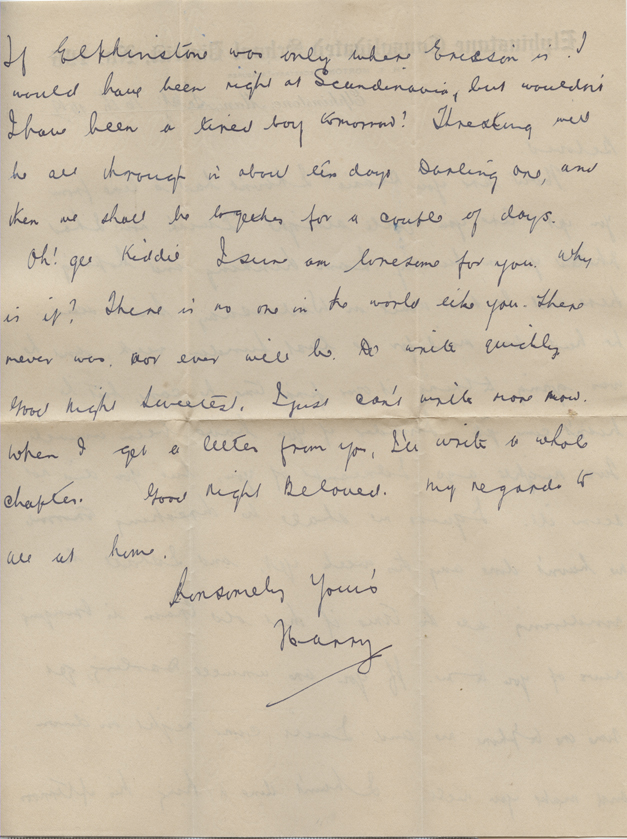 If Elphinstone was only where Ericson is. I
would have been right at Scandinavia, but wouldn't
I have been a tired boy tomorrow! Threshing will
be all through in about ten days Darling one, and
then we shall be together for a couple of days.
Oh! gee Kiddie I sure am lonesome for you. Why
is it? There is no one in the world like you. There
never was, nor ever will be. Do write quickly
Good Night Sweetest. I just can't write more now.
When I get a letter from you, I'll write a whole
chapter. Good Night Beloved. My regards to
all at home.
Lonsomely Yours
Harry